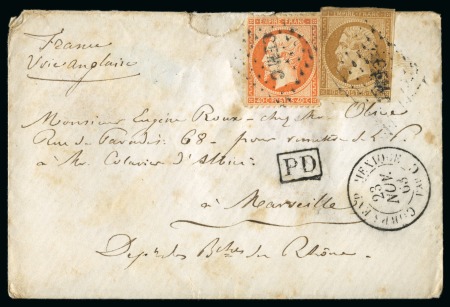 France
Voie anglaise
EMPIRE FRANC
EMPIRE FRANC
Monsieur Eugène Roux chez Mr Olive
Rue de Paradis 68 - pour remettre
à Mr
PD
CORPS EXP. MEXIQUE
23
NOV
63
à Marseille
Dept des Bches du Rhône